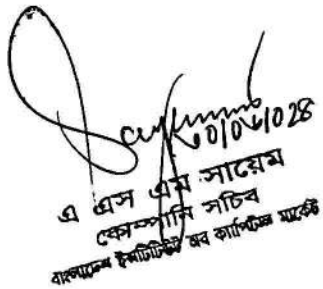 এ এস এম সায়েম
কোম্পানি সচিব
বাংলাদেশ ইনস্টিটিউট অব ক্যাপিটাল মার্কেট